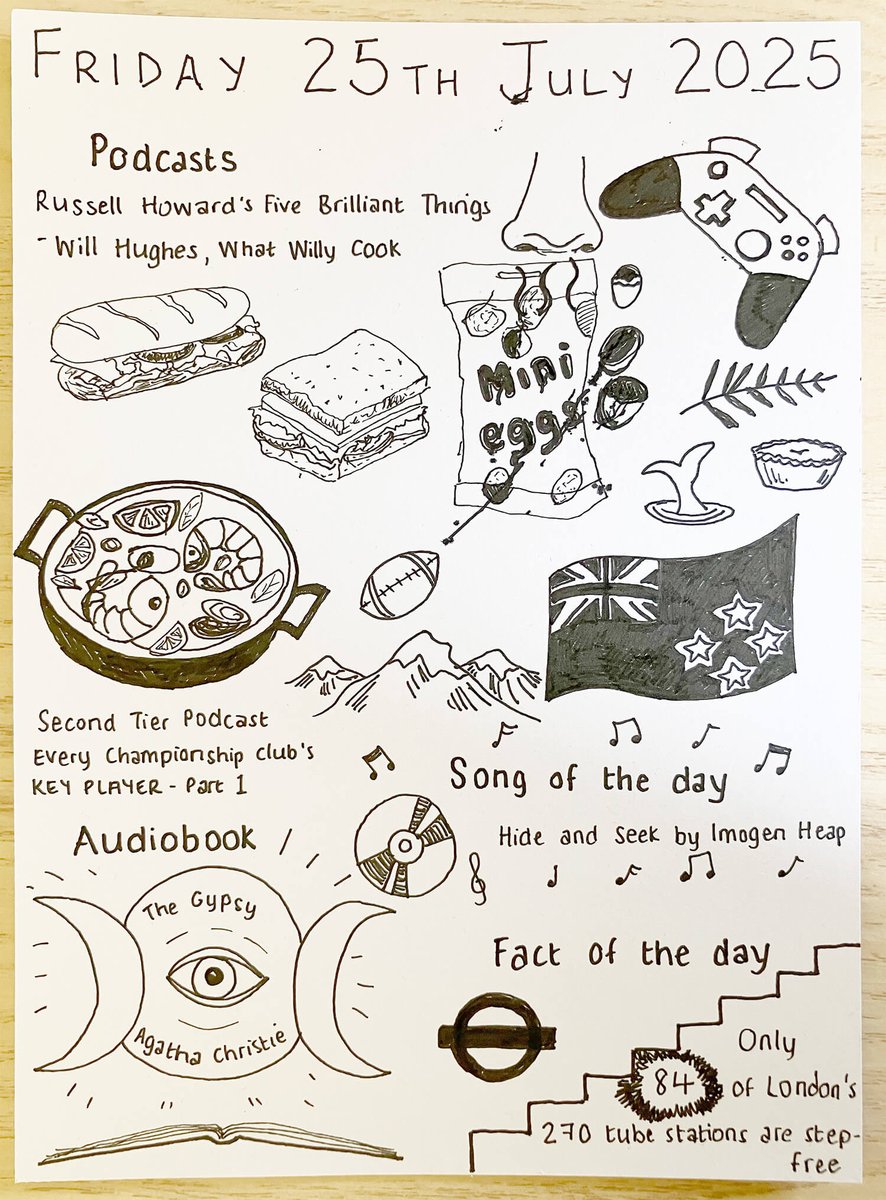 FRIDAY 25TH JULY 2025
Podcasts
Russell Howard's Five Brilliant Things
- Will Hughes, What Willy Cook
Mini
eggs
Second Tier Podcast
Every Championship club's
KEY PLAYER - Part 1
Song of the day
Hide and Seek by Imogen Heap
Audiobook
The Gypsy
Agatha Christie
Fact of the day
Only
84 of London's
270 tube stations are step-
free